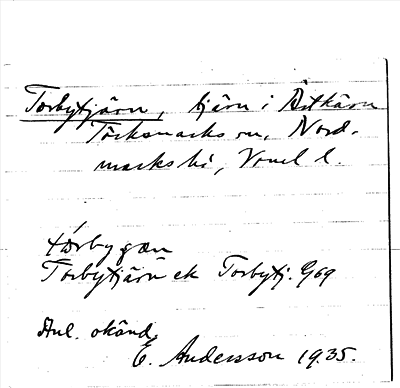 Torbytjärn, tjärn i Östkärn
Töcksmarks sn, Nord-
marks hd, Vrml l.
tɷrbyɟæn
Torbytjärn ek Torbytj. G69
Anl. okänd.
E. Andersson 1935.